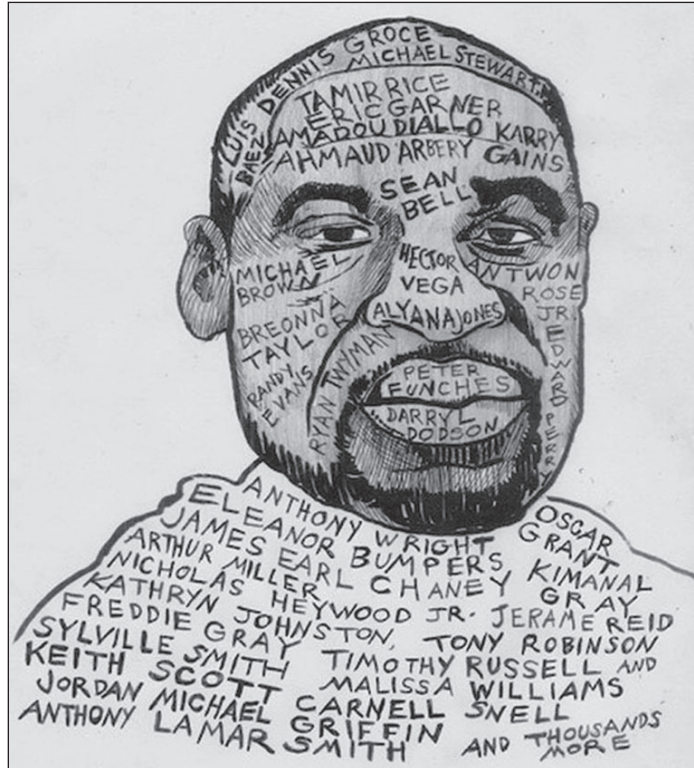 LUIS
BAEZ
DENNIS GROCE
MICHAEL STEWART
TAMIR RICE
ERIC GARNER
AMADOU DIALLO KARRY
AHMAUD ARBERY GAINS
SEAN
BELL
HECTOR
VEGA
MICHAEL
BROWN
ANTWON
ROSE
JR.
EDWARD
PERRY
BREONNA
TAYLOR
ALYANA JONES
RANDY
EVANS
RYAN TWYMAN
PETER
FUNCHES
DARRYL
DODSON
ANTHONY WRIGHT
OSCAR
GRANT
ELEANOR BUMPERS
KIMANAL
GRAY
JAMES EARL CHANEY
ARTHUR MILLER
NICHOLAS HEYWOOD JR. JERAME REID
KATHRYN JOHNSTON, TONY ROBINSON
FREDDIE GRAY TIMOTHY RUSSELL AND
SYLVILLE SMITH MALISSA WILLIAMS
KEITH SCOTT CARNELL SNELL
JORDAN MICHAEL GRIFFIN
ANTHONY LAMAR SMITH AND THOUSANDS
MORE